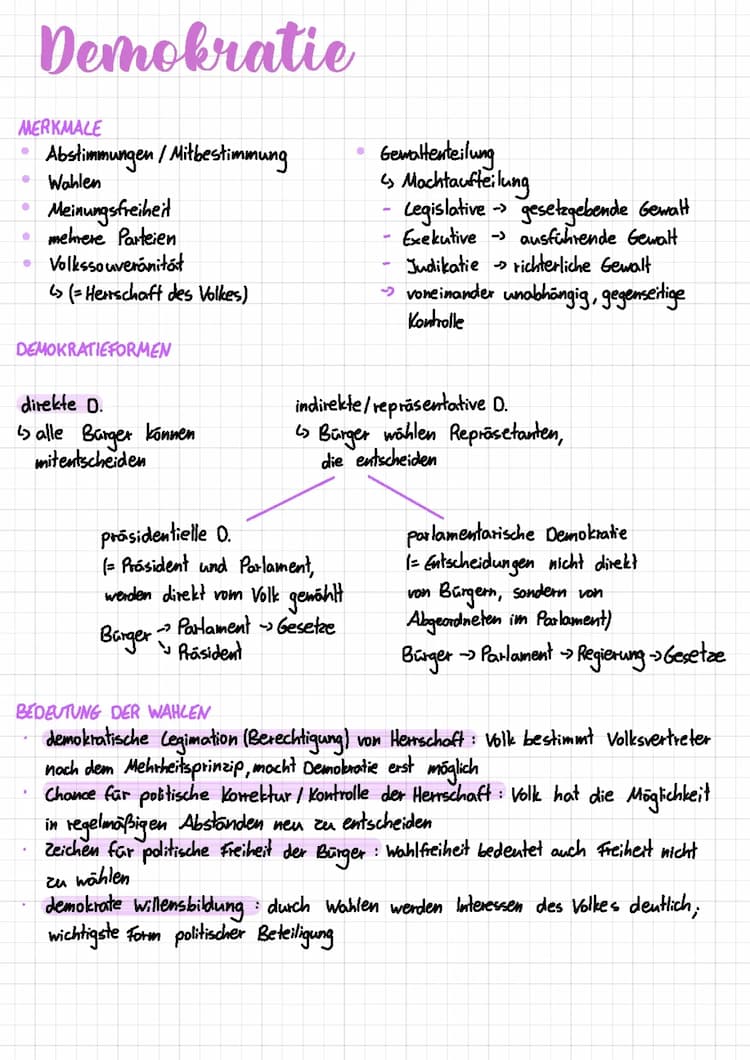 Demokratie
MERKMALE
• Abstimmungen / Mitbestimmung
• Wahlen
• Meinungsfreiheit
• mehrere Parteien
• Volkssouveränität
↳ (= Herrschaft des Volkes)
• Gewaltenteilung
↳ Machtaufteilung
- Legislative → gesetzgebende Gewalt
- Exekutive → ausführende Gewalt
- Judikatie → richterliche Gewalt
→ voneinander unabhängig, gegenseitige
Kontrolle
DEMOKRATIEFORMEN
direkte D.
↳ alle Bürger können
mitentscheiden
indirekte/repräsentative D.
↳ Bürger wählen Repräsetanten,
die entscheiden
präsidentielle D.
(= Präsident und Parlament,
werden direkt vom Volk gewählt
Bürger → Parlament → Gesetze
↘ Präsident
parlamentarische Demokratie
(= Entscheidungen nicht direkt
von Bürgern, sondern von
Abgeordneten im Parlament)
Bürger → Parlament → Regierung → Gesetze
BEDEUTUNG DER WAHLEN
· demokratische Legimation (Berechtigung) von Herrschaft : Volk bestimmt Volksvertreter
nach dem Mehrheitsprinzip, macht Demokratie erst möglich
· Chance für politische Korrektur / Kontrolle der Herrschaft : Volk hat die Möglichkeit
in regelmäßigen Abständen neu zu entscheiden
· Zeichen für politische Freiheit der Bürger : Wahlfreiheit bedeutet auch Freiheit nicht
zu wählen
· demokrate Willensbildung : durch Wahlen werden Interessen des Volkes deutlich;
wichtigste Form politischer Beteiligung